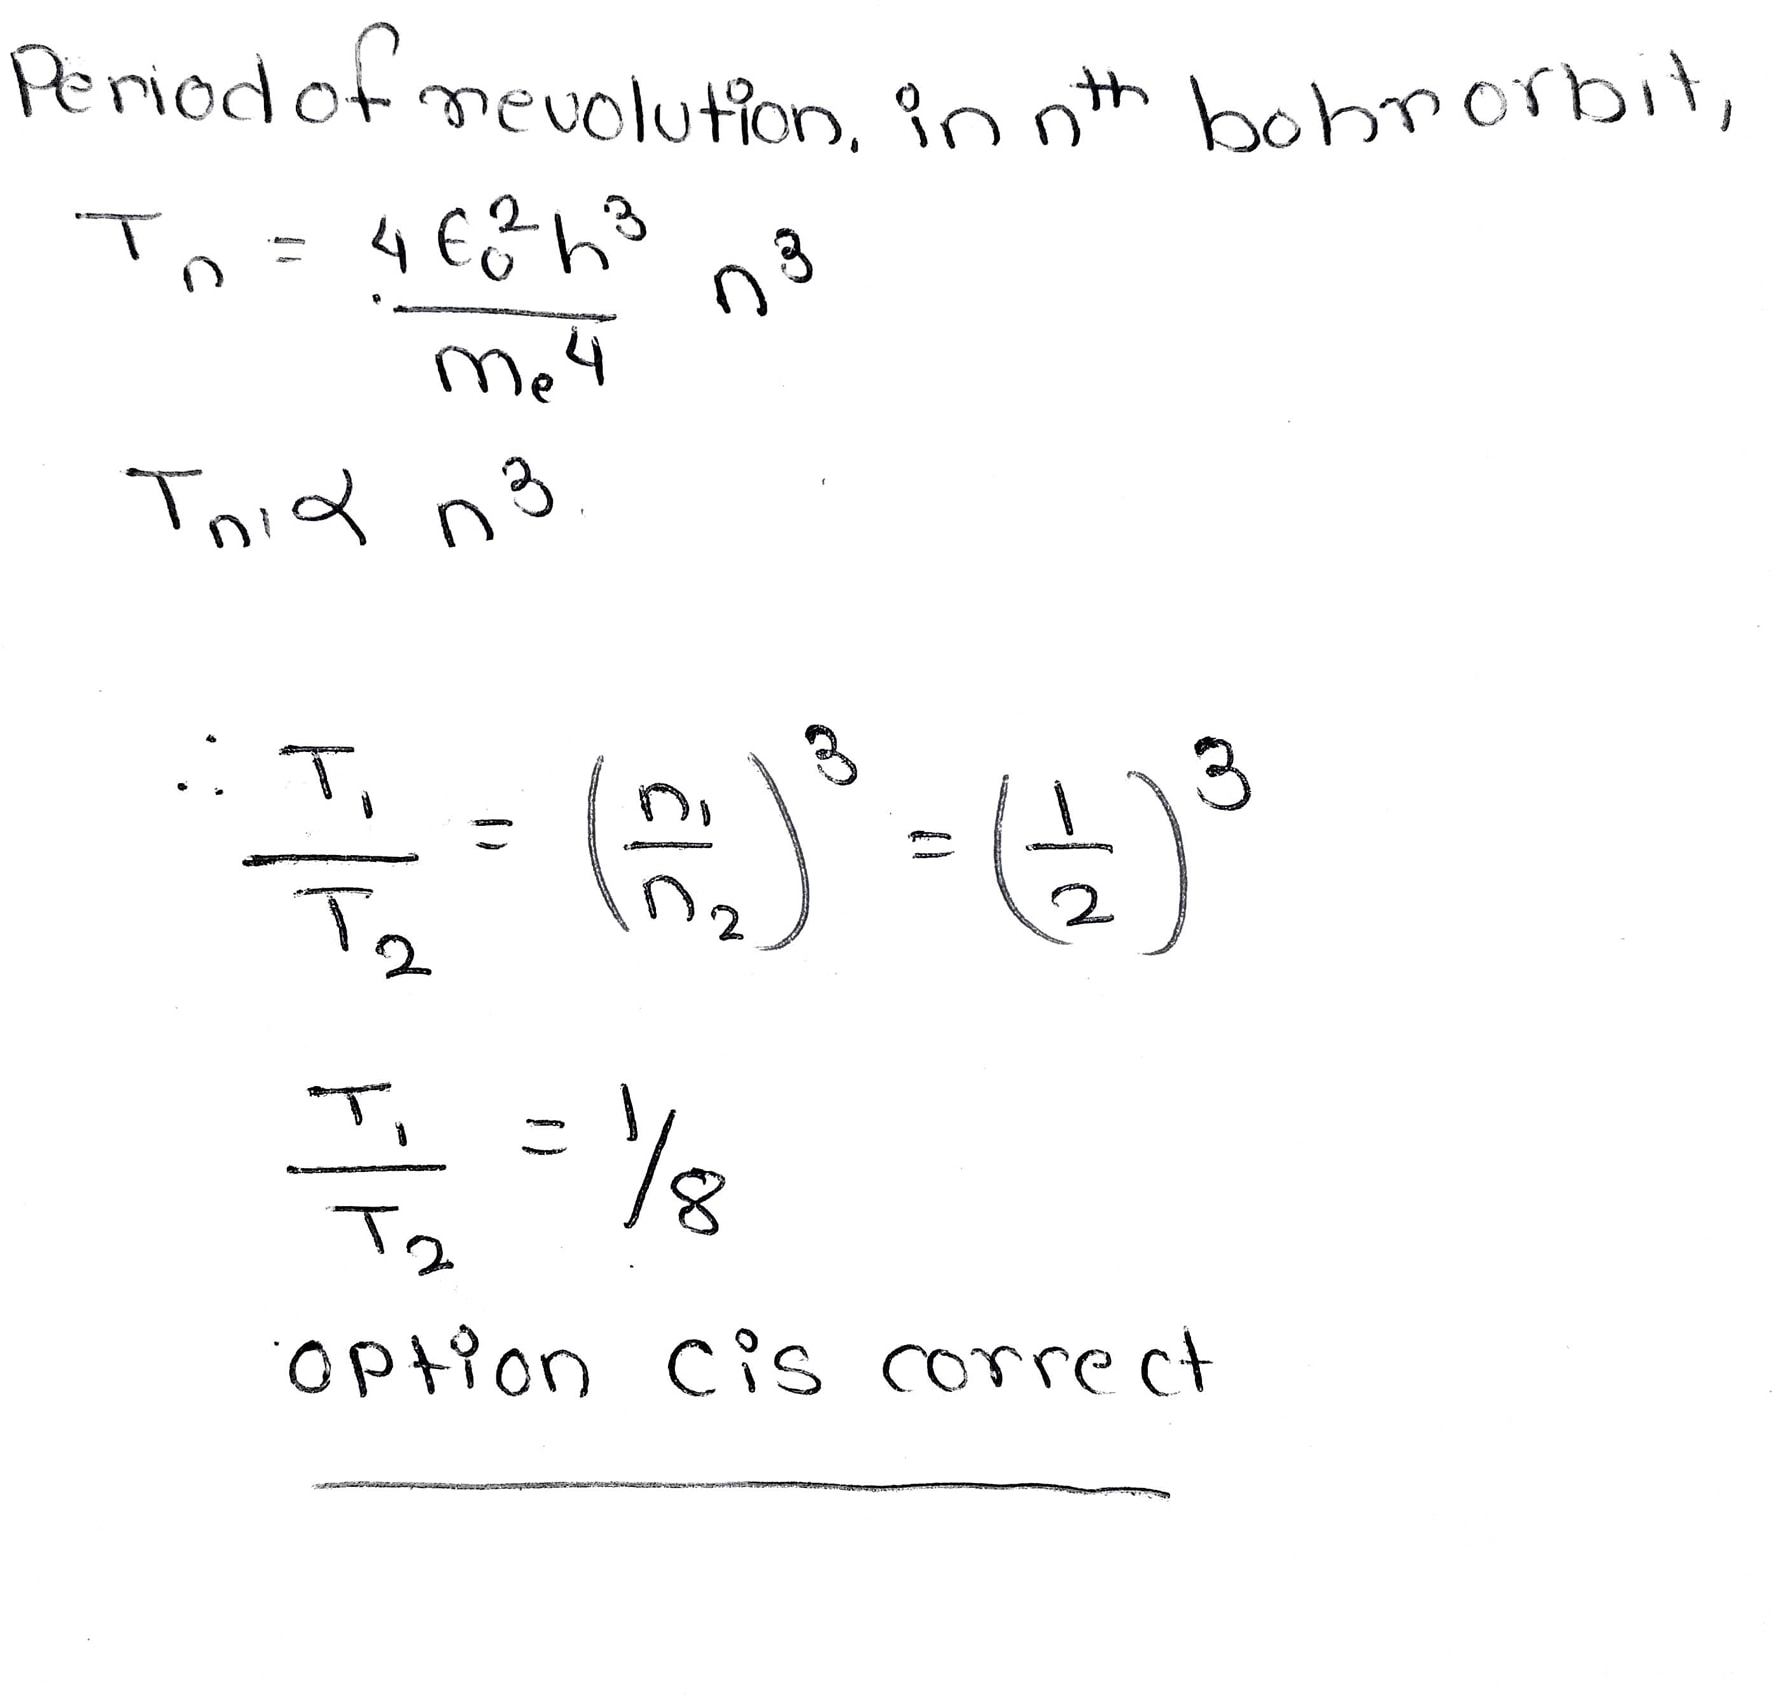 Period of revolution, in nth bohr orbit,
Tn = 4 ϵ0² h³ / me⁴ n³
Tn, ∝ n³.
∴ T1 / T2 = (n1 / n2)³ = (1 / 2)³
T1 / T2 = 1/8
option C is correct